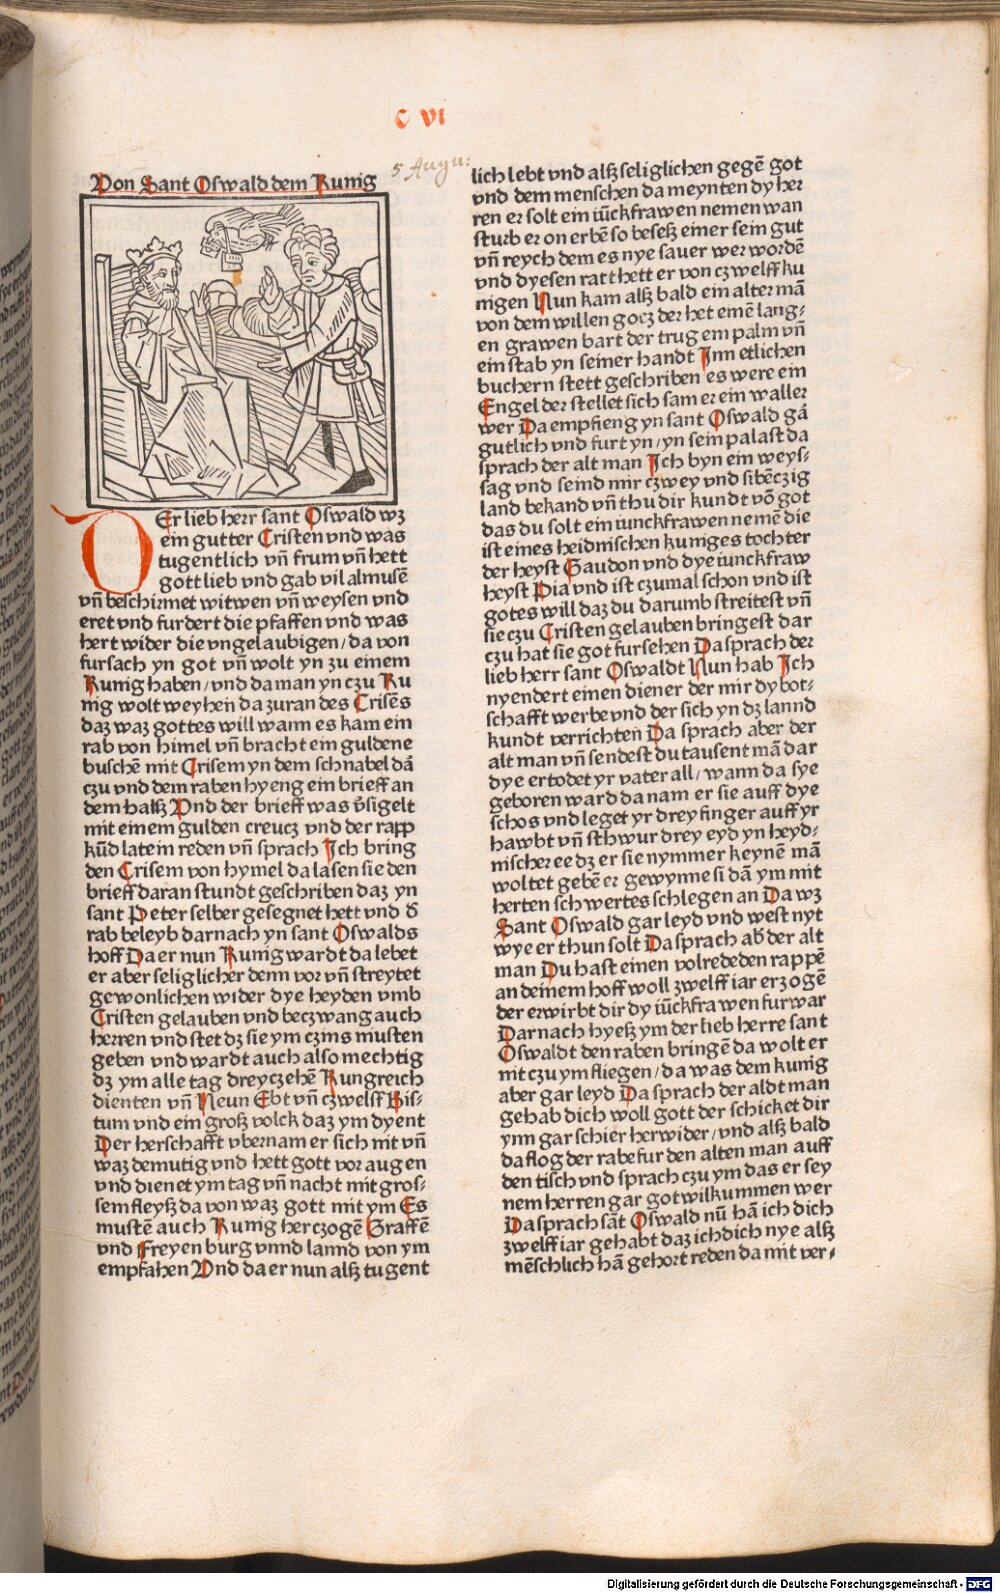 C VI
5 Augu:
Von Sant Oswald dem Kunig
DEr lieb herr sant Oswald wz
ein gutter Cristen vnd was
tugentlich vn̄ frum vn̄ hett
gott lieb vnd gab vil almusē
vn̄ beschirmet witwen vn̄ weysen vnd
eret vnd furdert die pfaffen vnd was
hert wider die vngelaubigen / da von
fursach yn got vn̄ wolt yn zu einem
Kunig haben / vnd da man yn czu Ku
nig wolt weyhen da zuran des Crisēs
daz waz gottes will wann es kam ein
rab von himel vn̄ bracht ein guldene
buschē mit Crisem yn dem schnabel dā
czu vnd dem raben hyeng ein brieff an
dem halſz Vnd der brieff was v̄sigelt
mit einem gulden creucz vnd der rapp
kūd latein reden vn̄ sprach Ich bring
den Crisem von hymel da lasen sie den
brieff daran stundt geschriben daz yn
sant Peter selber gesegnet hett vnd d̄
rab beleyb darnach yn sant Oswalds
hoff Da er nun Kunig wardt da lebet
er aber seliglicher denn vor vn̄ streytet
gewonlichen wider dye heyden vmb
Cristen gelauben vnd beczwang auch
herren vnd stet dz sie ym czins musten
geben vnd wardt auch also mechtig
dz ym alle tag dreyczehē Kungreich
dienten vn̄ Neun Ebt vn̄ czwelff Bis-
tum vnd ein groſz volck daz ym dyent
Der herschafft vbernam er sich nit vn̄
waz demutig vnd hett gott vor augen
vnd dienet ym tag vn̄ nacht mit gros-
sem fleyſz da von waz gott mit ym Es
mustē auch Kunig herczogē Graffē
vnd Freyen burg vnnd lannd von ym
empfahen Vnd da er nun alſz tugent
lich lebt vnd alſz seliglichen gegē got
vnd dem menschen da meynten dy her
ren er solt ein iūckfrawen nemen wan
sturb er on erbē so besesz einer sein gut
vn̄ reych dem es nye sauer wer wordē
vnd dyesen ratt hett er von czwelff ku
nigen Nun kam alſz bald ein alter mā
von dem willen gocz der het einē lang-
en grawen bart der trug ein palm vn̄
ein stab yn seiner handt Inn etlichen
buchern stett geschriben es were ein
Engel der stellet sich sam er ein waller
wer Da empfieng yn sant Oswald gā
gutlich vnd furt yn / yn sein palast da
sprach der alt man Ich byn ein weys-
sag vnd seind mir czwey vnd sibēczig
land bekand vn̄ thu dir kundt vō got
das du solt ein iunckfrawen nemē die
ist eines heidnischen kuniges tochter
der heyst Gaudon vnd dye iunckfraw
heyst Pia vnd ist czumal schon vnd ist
gotes will daz du darumb streitest vn̄
sie czu Cristen gelauben bringest dar
czu hat sie got fursehen Da sprach der
lieb herr sant Oswaldt Nun hab Ich
nyendert einen diener der mir dy bot-
schafft werbe vnd der sich yn dz lannd
kundt verrichten Da sprach aber der
alt man vn̄ sendest du tausent mā dar
dye ertodet yr vater all / wann da sye
geboren ward da nam er sie auff dye
schos vnd leget yr drey finger auff yr
hawbt vn̄ sthwur drey eyd yn heyd-
nischer ee dz er sie nymmer keynē mā
woltet gebē er gewynne si dā ym mit
herten schwertes schlegen an Da wz
Sant Oswald gar leyd vnd west nyt
wye er thun solt Da sprach ab̄ der alt
man Du hast einen volrededen rappē
an deinem hoff woll zwelff iar erzogē
der erwirbt dir dy iūckfrawen furwar
Darnach hyeſz ym der lieb herre sant
Oswaldt den raben bringē da wolt er
nit czu ym fliegen / da was dem kunig
aber gar leyd Da sprach der aldt man
gehab dich woll gott der schicket dir
ynn gar schier herwider / vnd alſz bald
da flog der rabe fur den alten man auff
den tisch vnd sprach czu ym das er sey
nem herren gar got wilkummen wer
Da sprach sāt Oswald nū hā ich dich
zwelff iar gehabt daz ich dich nye alſz
mēschlich hā gehort reden da mit ver-
Digitalisierung gefördert durch die Deutsche Forschungsgemeinschaft - DFG